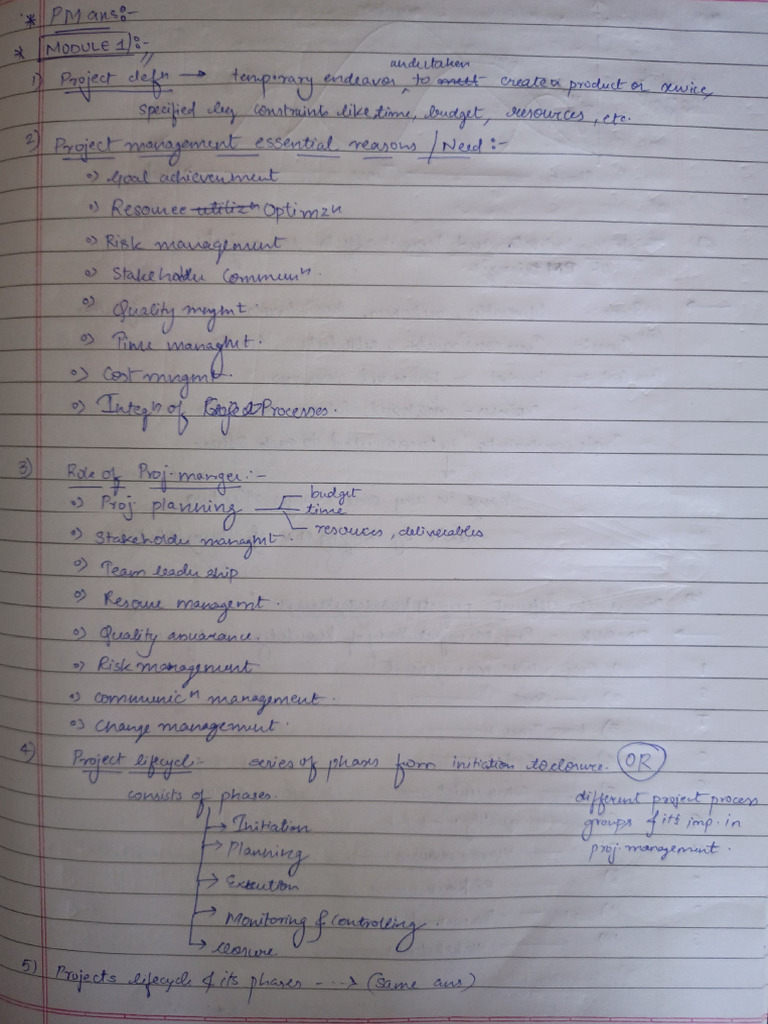 * PM ans:-
* MODULE 1):-
undertaken
1) Project defn → temporary endeavor, to meet create a product or service,
specified by constraints like time, budget, resources, etc.
2) Project management essential reasons / Need :-
•) Goal achievement
•) Resource utilizn Optimzn
•) Risk management
•) Stakeholder Communn.
•) Quality mngmt.
•) Time managmt.
•) Cost mngmt.
•) Integn of Project Processes.
3) Role of Proj. manger :-
budget
•) Proj planning time
resources, deliverables
•) Stakeholder managmt.
•) Team leadership
•) Resoure managemt.
•) Quality assurance.
•) Risk management
•) communicn management.
•) Change management.
4) Project lifecycle:- series of phases from initiation to closure. OR
consists of phases.
different project process
groups & its imp. in
proj. management.
→ Initiation
→ Planning
→ Execution
→ Monitoring & controlling.
→ closure
5) Projects lifecycle & its phases ----> (same ans)